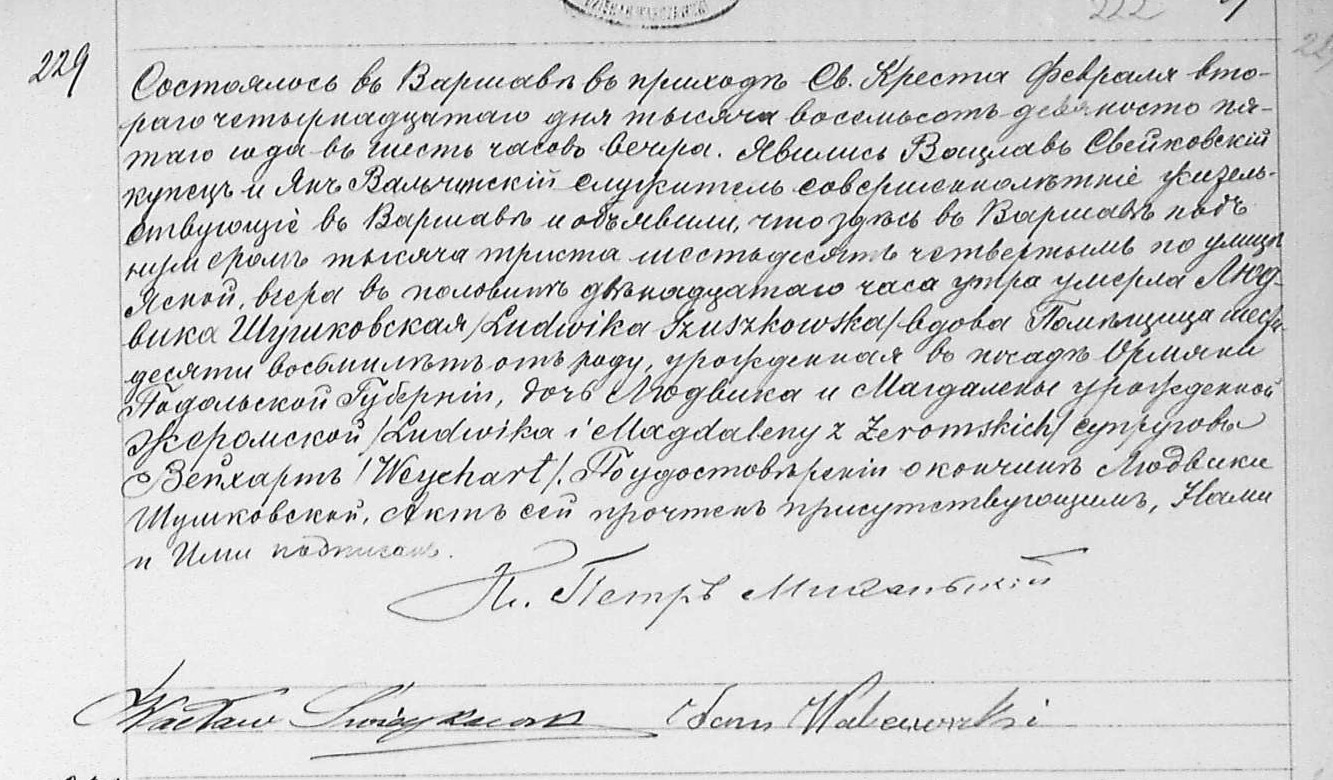 222
229
Состоялось въ Варшавѣ въ приходѣ Св. Креста Февраля вто-
раго четырнадцатаго дня тысяча восемьсотъ девяносто пя-
таго года въ шесть часовъ вечера. Явились Вацлавъ Свейковскій
купецъ и Янъ Вальчинскій служитель совершеннолѣтніе жизель-
ствующіе въ Варшавѣ и объявили, что здѣсь въ Варшавѣ подъ
нумеромъ тысяча триста шестьдесятъ четвертымъ по улицѣ
Ясной, вчера въ половинѣ двѣнадцатаго часа утра умерла Люд-
вика Шушковская /Ludwika Szuszkowska/ вдова Помѣщица шести-
десяти восьми лѣтъ отъ роду, урожденная въ посадѣ Ормяни
Подольской Губерніи, дочь Людвика и Магдалены урожденной
Жеромской /Ludwika i Magdaleny z Żeromskich/ супруговъ
Вейхартъ /Weychart/. По удостовѣреніи о кончинѣ Людвики
Шушковской, Актъ сей прочтенъ присутствующимъ, Нами
и Ими подписанъ.
Кс. Петръ
Wacław
Jan